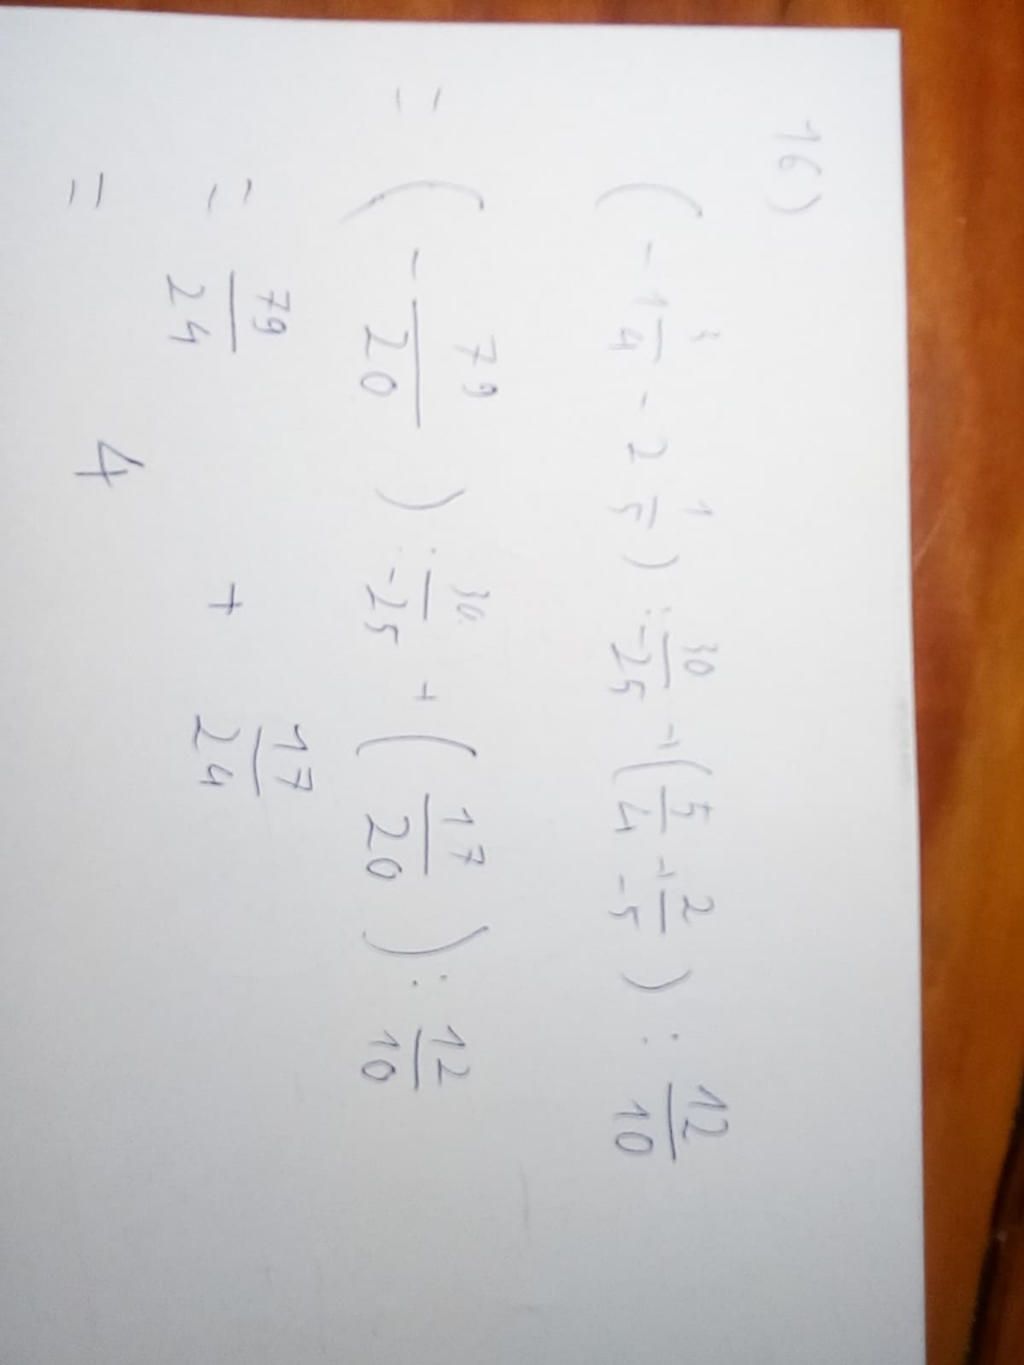 16)
(-1 3/4 - 2 1/5) : 30/-25 + (5/4 + 2/-5) : 12/10
= (- 79/20) : 30/-25 + (17/20) : 12/10
= 79/24 + 17/24
= 4